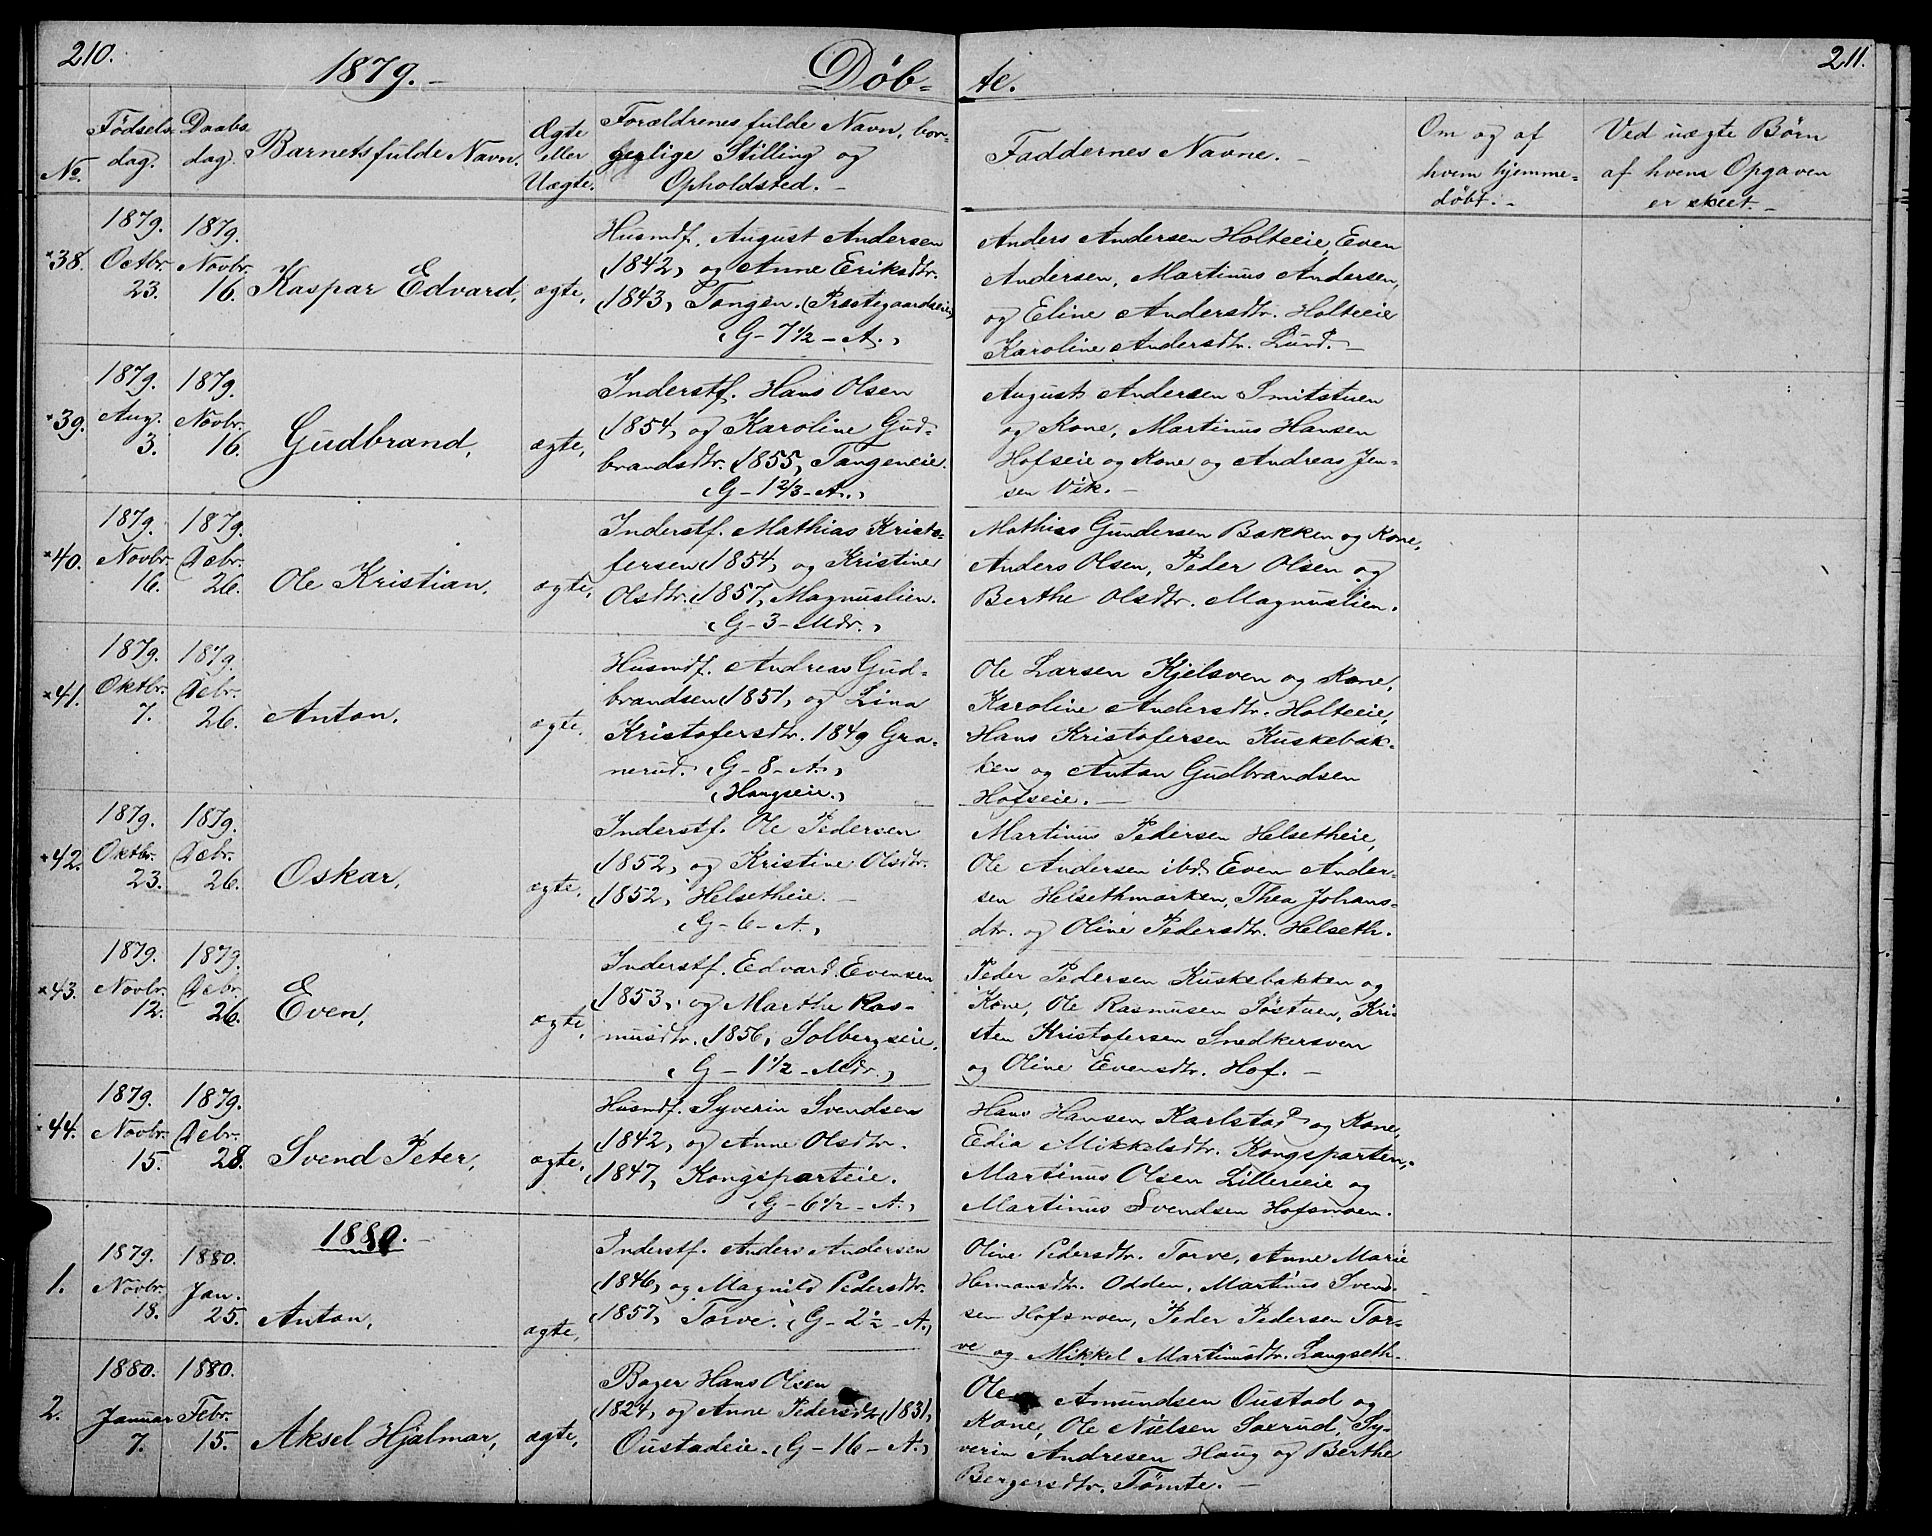 210.
1879.-
Døb-
te.
211.
No.
Fødsels-
dag.
Daabs
dag.
Barnets fulde Navn.
Ægte
eller
Uægte.
Forældrenes fulde Navn, bor-
gerlige Stilling og
Opholdsted.-
Faddernes Navne.-
Om og af
hvem hjemme-
døbt.-
Ved uægte Børn
af hvem Opgaven
er skeet.-
*38.
1879.
Octbr.
23.
1879.
Novbr.
16.
Kaspar Edvard,
ægte,
Husmdf. August Andersen
(1842) og Anne Eriksdtr.
(1843) Tangen. (Præstegaardseie)
(G-7 1/2-A.)
Anders Andersen Holteeie, Even
Andersen, Martinus Andersen,
og Eline Andersdtr. Holteeie
Karoline Andersdtr. Lund.-
*39.
1879.
Aug.
3.
1879.
Novbr.
16.
Gudbrand,
ægte,
Inderstf. Hans Olsen
(1854) og Karoline Gud-
brandsdtr. (1855) Tangeneie.
(G-1 2/3-A.)
August Andersen Smitstuen
og Kone, Martinus Hansen
Hofseie og Kone og Andreas Jen-
sen Vik.-
*40.
1879.
Novbr.
16.
1879.
Decbr.
26.
Ole Kristian,
ægte,
Inderstf. Mathias Kristo-
fersen (1854) og Kristine
Olsdtr. (1857) Magnuslien.
(G-3-Mdr.)
Mathias Gundersen Bakken og Kone,
Anders Olsen, Peder Olsen og
Berthe Olsdtr. Magnuslien.
*41.
1879.
Oktbr.
7.
1879.
Decbr.
26.
Anton,
ægte,
Husmdf. Andreas Gud-
brandsen (1851) og Lina
Kristofersdtr. 1849 Gra-
nerud. (G-8-A.)
(Haugseie.)
Ole Larsen Kjelsven og Kone,
Karoline Andersdtr. Holteeie,
Hans Kristofersen Kuskebak-
ken og Anton Gudbrandsen
Hofseie.-
*42.
1879.
Oktbr.
23.
1879.
Decbr.
26.
Oskar,
ægte,
Inderstf. Ole Pedersen
(1852) og Kristine Olsdtr.
(1852) Helsetheie.-
(G-6-A.)
Martinus Pedersen Helsetheie,
Ole Andersen ibd. Even Ander-
sen Helsethmarken, Thea Johans-
dtr. og Oline Pedersdtr. Helseth.
*43.
1879.
Novbr.
12.
1879.
Decbr.
26.
Even,
ægte,
Inderstf. Edvard Evensen
(1853) og Marthe Ras-
musdtr. (1856) Solbergseie.
(G-1 1/2-Mdr.)
Peder Pedersen Kuskebakken og
Kone, Ole Rasmusen Søstuen, Kri-
sten Kristofersen Snedkersven
og Oline Evensdtr. Hof.-
*44.
1879.
Novbr.
15.
1879.
Decbr.
28.
Svend Peter,
ægte,
Husmdf. Syverin Svendsen
(1842) og Anne Olsdtr.
(1847) Kongsparteie.
(G-6 1/2-A.)
Hans Hansen Karlstad og Kone,
Edia Mikkelsdtr. Kongsparten,
Martinus Olsen Lillereie og
Martinus Svendsen Hofsmoen.
1880.-
1.
1879.
Novbr.
18.
1880.
Jan.
25.
Anton,
ægte,
Inderstf. Anders Andersen
(1846) og Magnild Pedersdtr.
(1857) Torve. (G-2 1/2-A.)
Oline Pedersdtr. Torve, Anne Marie
Hermansdtr. Odden, Martinus Svend-
sen Hofsmoen, Peder Pedersen Tor-
ve og Mikkel Martinusdtr. Langseth.
2.
1880.
Januar
7.
1880.
Febr.
15.
Aksel Hjalmar,
ægte,
Bager Hans Olsen
(1824) og Anne Pedersdtr. (1831)
Oustadeie. (G-16-A.)
Ole Amundsen Oustad og
Kone, Ole Nielsen Sorud, Sy-
verin Andresen Haug og Berthe
Bergersdtr. Tømte.-